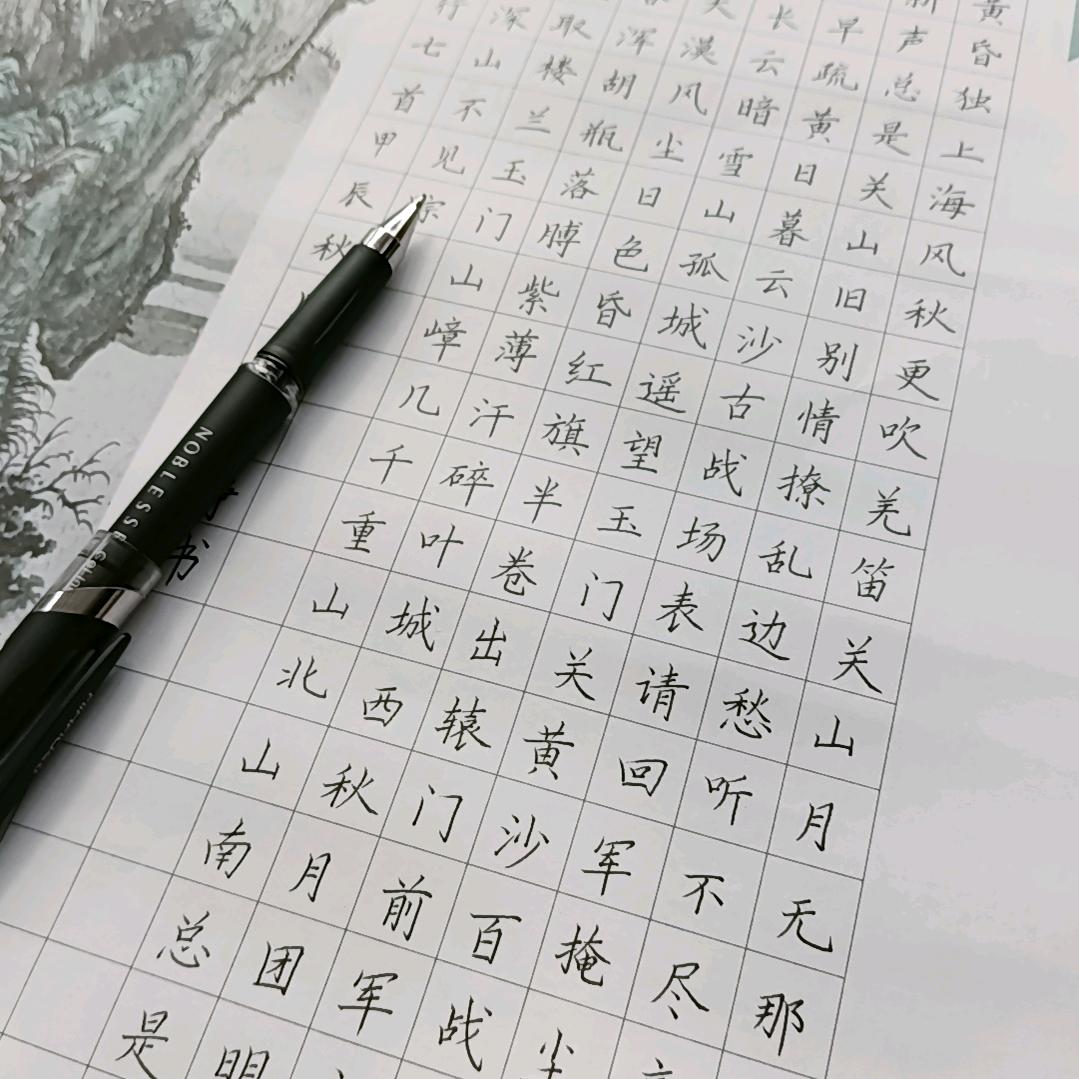 黄昏独上海风秋更吹羌笛关山月无那
新声总是关山旧别情撩乱边愁听不尽
早疏黄日暮云沙古战场表请回军掩尘
长云暗雪山孤城遥望玉门关黄沙百战
大漠风尘日色昏红旗半卷出辕门前军
浑胡瓶落膊紫薄汗碎叶城西秋月团明
取楼兰玉门山嶂几千重山北山南总是
深山不见
行七首甲辰秋
书
NOBLESSE